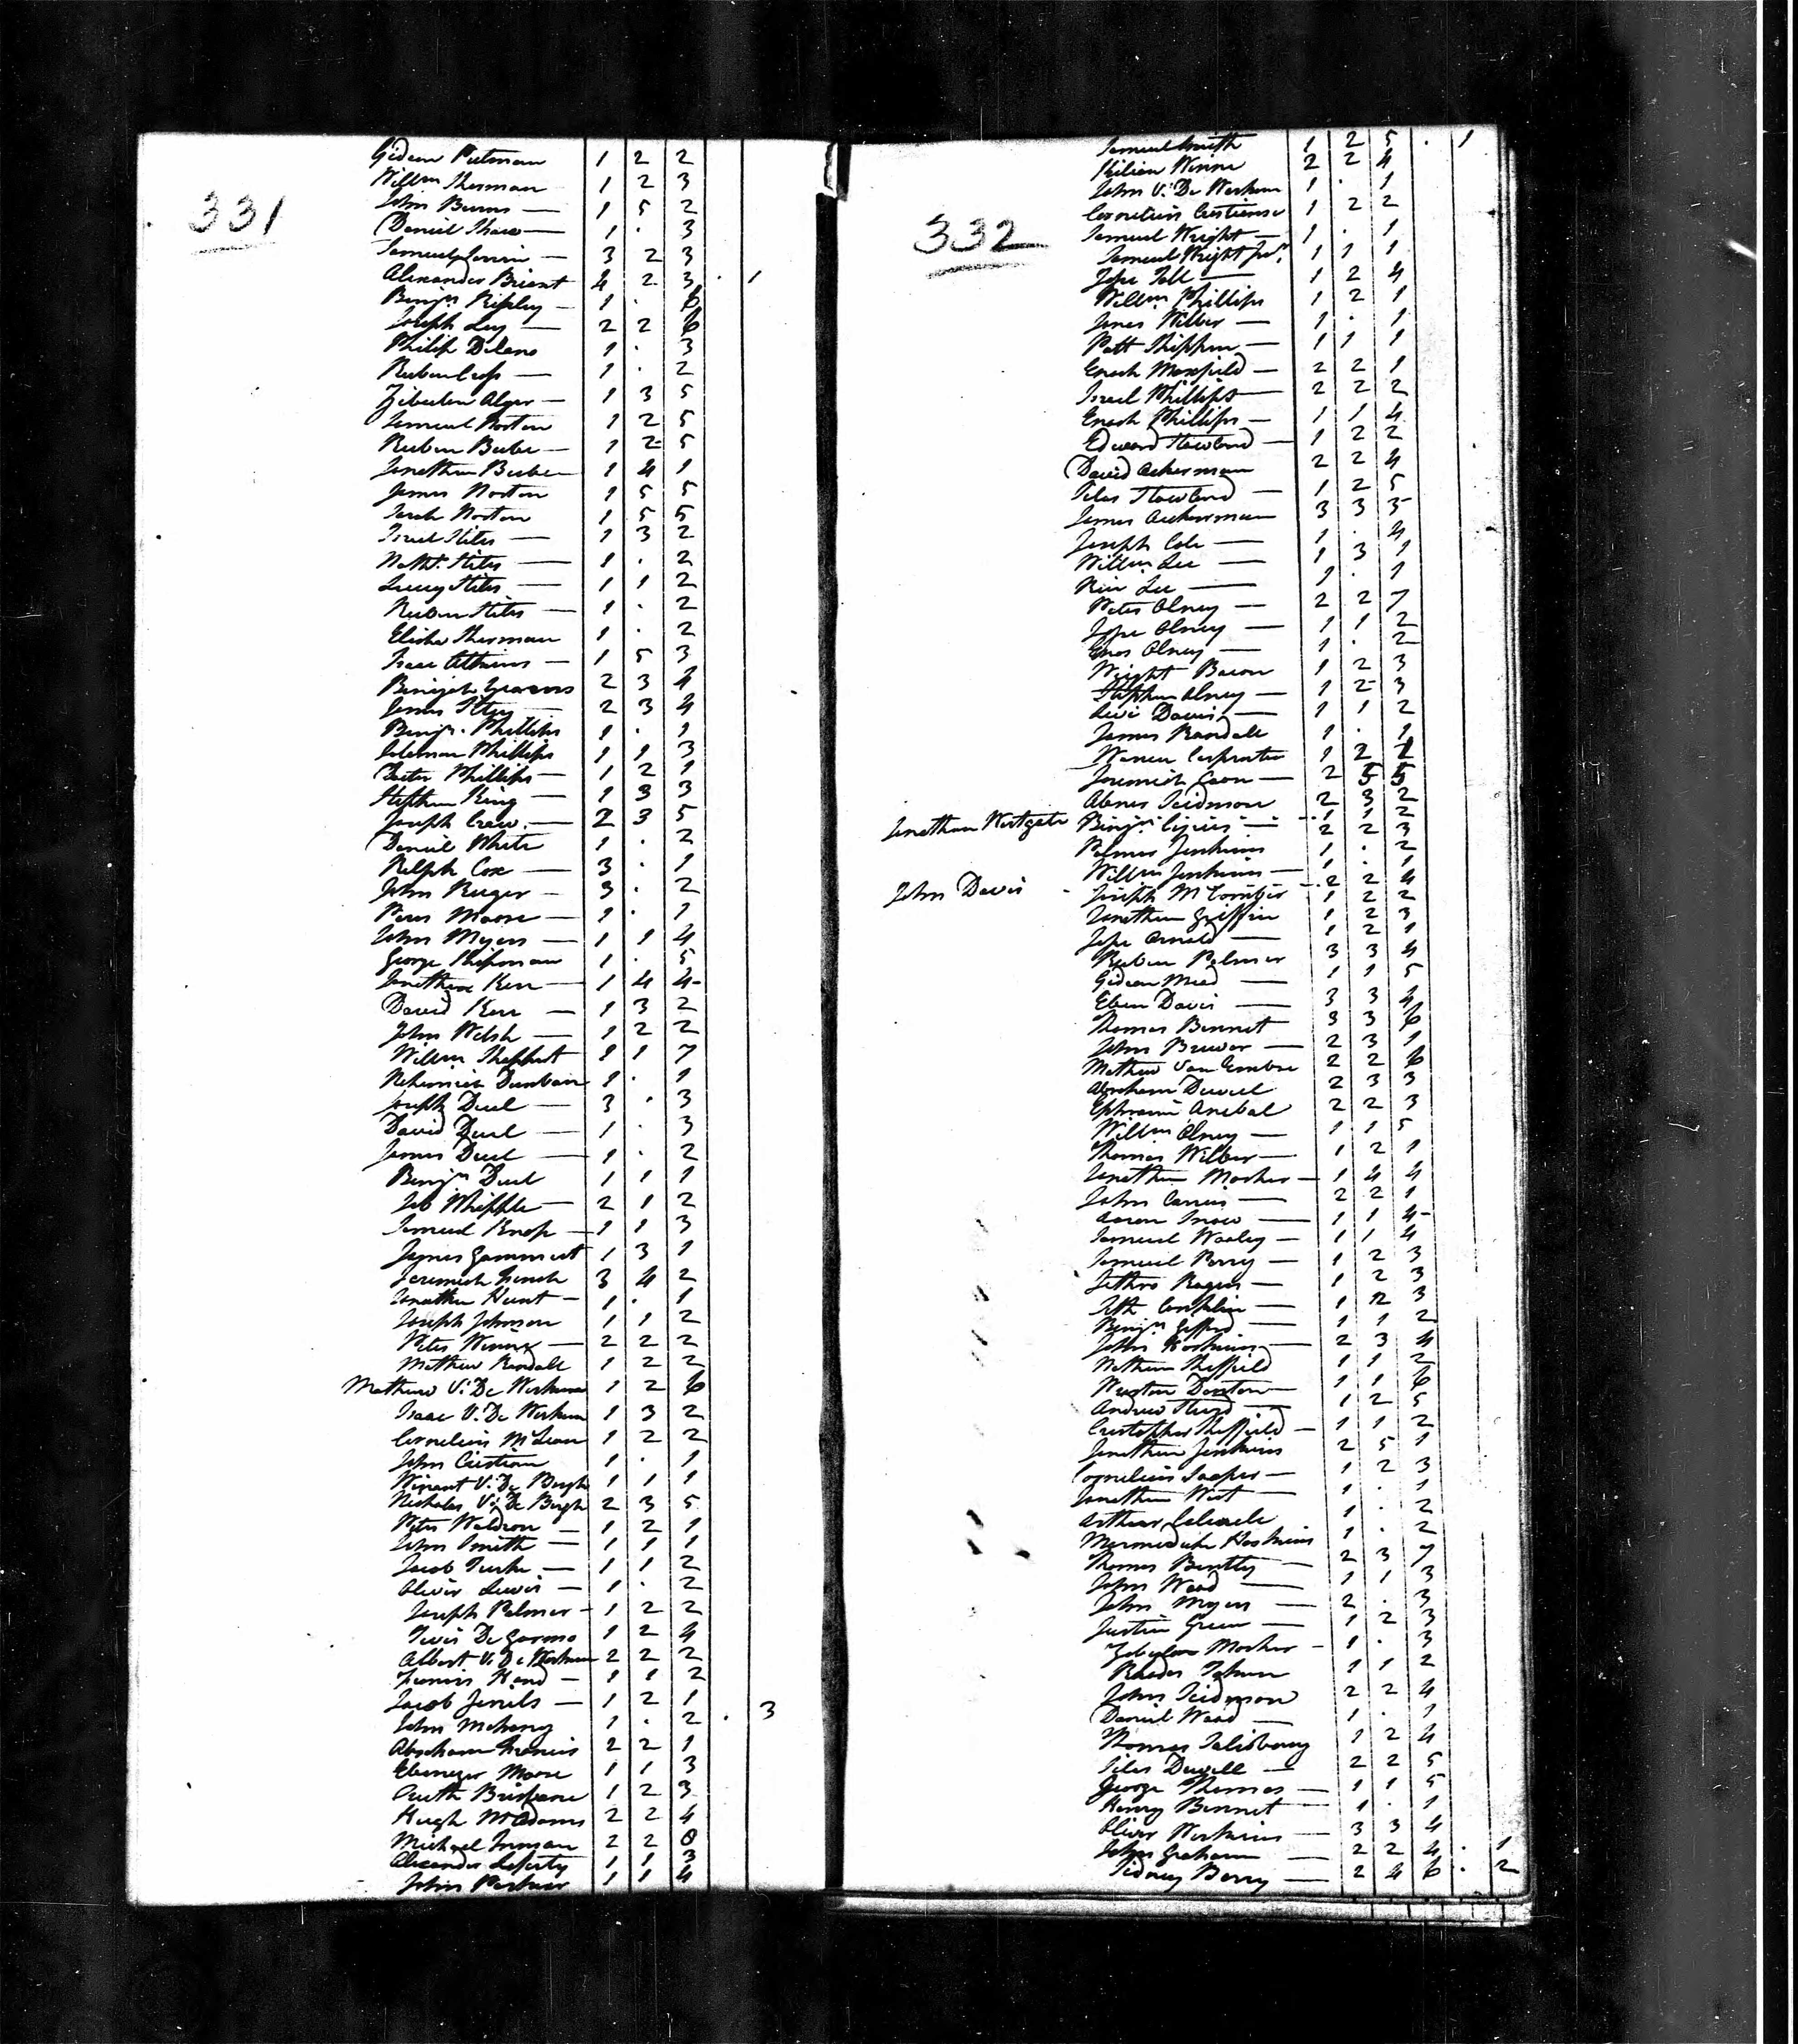 331
Gideon Putman 1 2 2
Willm Sherman 1 2 3
John Burns — 1 5 2
Daniel Shaw — 1 . 3
Samuel — 3 2 3
Alexander Briant 4 2 3 . 1
Benjn Ripley — 1 . 6
Joseph Ley — 2 2 6
Philip Delano 1 . 3
Reuben — 1 . 2
Alger — 1 3 5
Samuel Norton 1 2 5
Reuben Beebe — 1 2 5
Jonathan Beebe 1 4 1
James Norton 1 5 5
Sarah Norton 1 5 5
Israel Stiles — 1 3 2
Nathl. Stiles — 1 . 2
Stiles — 1 1 2
Reuben Stiles — 1 . 2
Elisha Sherman 1 . 2
Isaac — 1 5 3
2 3 4
James — 2 3 4
Benjn. Phillips 1 . 1
Coleman Phillips 1 1 3
Phillips — 1 2 1
Stephen King — 1 3 3
Joseph Craw. — 2 3 5
Daniel White 1 . 2
Ralph Cox — 3 . 1
John Ruger — 3 . 2
Moore — 1 . 1
John Myers — 1 1 4
George Shipman 1 . 5
Jonathan Kerr — 1 4 4
David Kerr — 1 3 2
John Welsh — 1 2 2
Willm 1 1 7
Nehemiah Dunbar 1 . 1
Joseph Duel — 3 . 3
David Duel — 1 . 3
James Duel — 1 . 2
Benjn Duel 1 1 1
Job Whipple — 2 1 2
Samuel Knap — 1 1 3
James 1 3 1
Jeremiah 3 4 2
Jonathan Hunt — 1 . 1
Joseph Johnson 1 1 2
Peter — 2 2 2
Mathew Randall 1 2 2
Mathew V. De Werken 1 2 6
Isaac V. De Werken 1 3 2
Cornelius McLean 1 2 2
John Cristian 1 . 1
Winant V. De Bergh 1 1 1
Nicholas V. De Bergh 2 3 5
Peter Waldron — 1 2 1
John Smith — 1 1 1
Jacob — 1 1 2
Oliver Lewis — 1 . 2
Joseph Palmer — 1 2 2
De Garmo 1 2 4
Albert V. De Werken 2 2 2
Francis Hand — 1 1 2
Jacob — 1 2 1
John 1 . 2 . 3
Abraham Francis 2 2 1
Ebenezer Moore 1 1 3
Ruth Brisbane 1 2 3
Hugh McAdams 2 2 4
Michael Inman 2 2 0
Alexander 1 1 3
John 1 1 4
332
Samuel Smith 1 2 5 . 1
Kilian Winne 2 2 4
John V. De Werken 1 . 1
Cornelius 1 2 2
Samuel Wright — 1 . 1
Samuel Wright Junr. 1 1 1
Jesse — 1 2 4
Willm Phillips 1 2 1
Jones Wilber — 1 . 1
— 1 1 1
Enoch Maxfield — 2 2 1
Israel Phillips — 2 2 2
Enoch Phillips — 1 1 4
Edward Howland — 1 2 2
David Ackerman 2 2 4
Silas Howland — 1 2 5
James Ackerman 3 3 3
Joseph Cole — 1 . 4
Willm Lee — 1 3 1
Lee — 1 . 1
Peter Olney — 2 2 7
Jesse Olney — 1 1 2
Enos Olney — 1 . 2
Wright Bacon 1 2 3
Stephen Olney — 1 2 3
Levi Davis — 1 1 2
James Randall 1 . 1
Warren Carpenter 1 2
Jeremiah — 2 5 5
Abner Scidmore 2 3 2
Jonathan Westgate Benjn — 1 1 2
2 2 3
Palmer Jenkins 1 . 2
Willm Jenkins — 1 . 1
John Davis - Joseph McComber 2 2 4
1 2 2
Jonathan Griffin 1 2 3
Jesse Arnold — 1 2 1
Reuben Palmer 3 3 4
Gideon Mead — 1 1 5
Eben Davis — 3 3 4
Thomas Bennet 3 3 6
John Brewer — 2 3 1
Mathew Van 2 2 6
Abraham 2 3 3
Ephraim Anibal 2 2 3
Willm Olney — 1 1 5
Thomas Wilber — 1 2 1
Jonathan Mosher — 1 4 4
John — 2 2 1
Aaron Snow — 1 1 4
Samuel Wooley — 1 1 4
Samuel Perry — 1 2 3
Jethro Rogers — 1 2 3
Seth Conklin — 1 2 3
Benjn Gifford — 1 1 2
John Hoskins 2 3 4
Nathan Sheffield 1 1 2
— 1 1 6
Andrew — 1 2 5
Cristopher Sheffield — 1 1 2
Jonathan Jenkins 2 5 1
Cornelius — 1 2 3
Jonathan West — 1 . 1
Arthur 1 . 2
Hoskins 1 . 2
Thomas Bentley — 2 3 7
John Wood — 1 1 3
John Myers — 2 . 3
Justin Green — 1 2 3
Mosher — 1 . 3
1 1 2
John Scidmore 2 2 4
Daniel Wood — 1 . 1
Thomas Salisbury 1 2 4
Silas Duvell — 2 2 5
George Thomas — 1 1 5
Henry Bennet — 1 . 1
Oliver — 3 3 4
John Graham — 2 2 4 . 1
Sidney Berry — 2 4 6 . 2